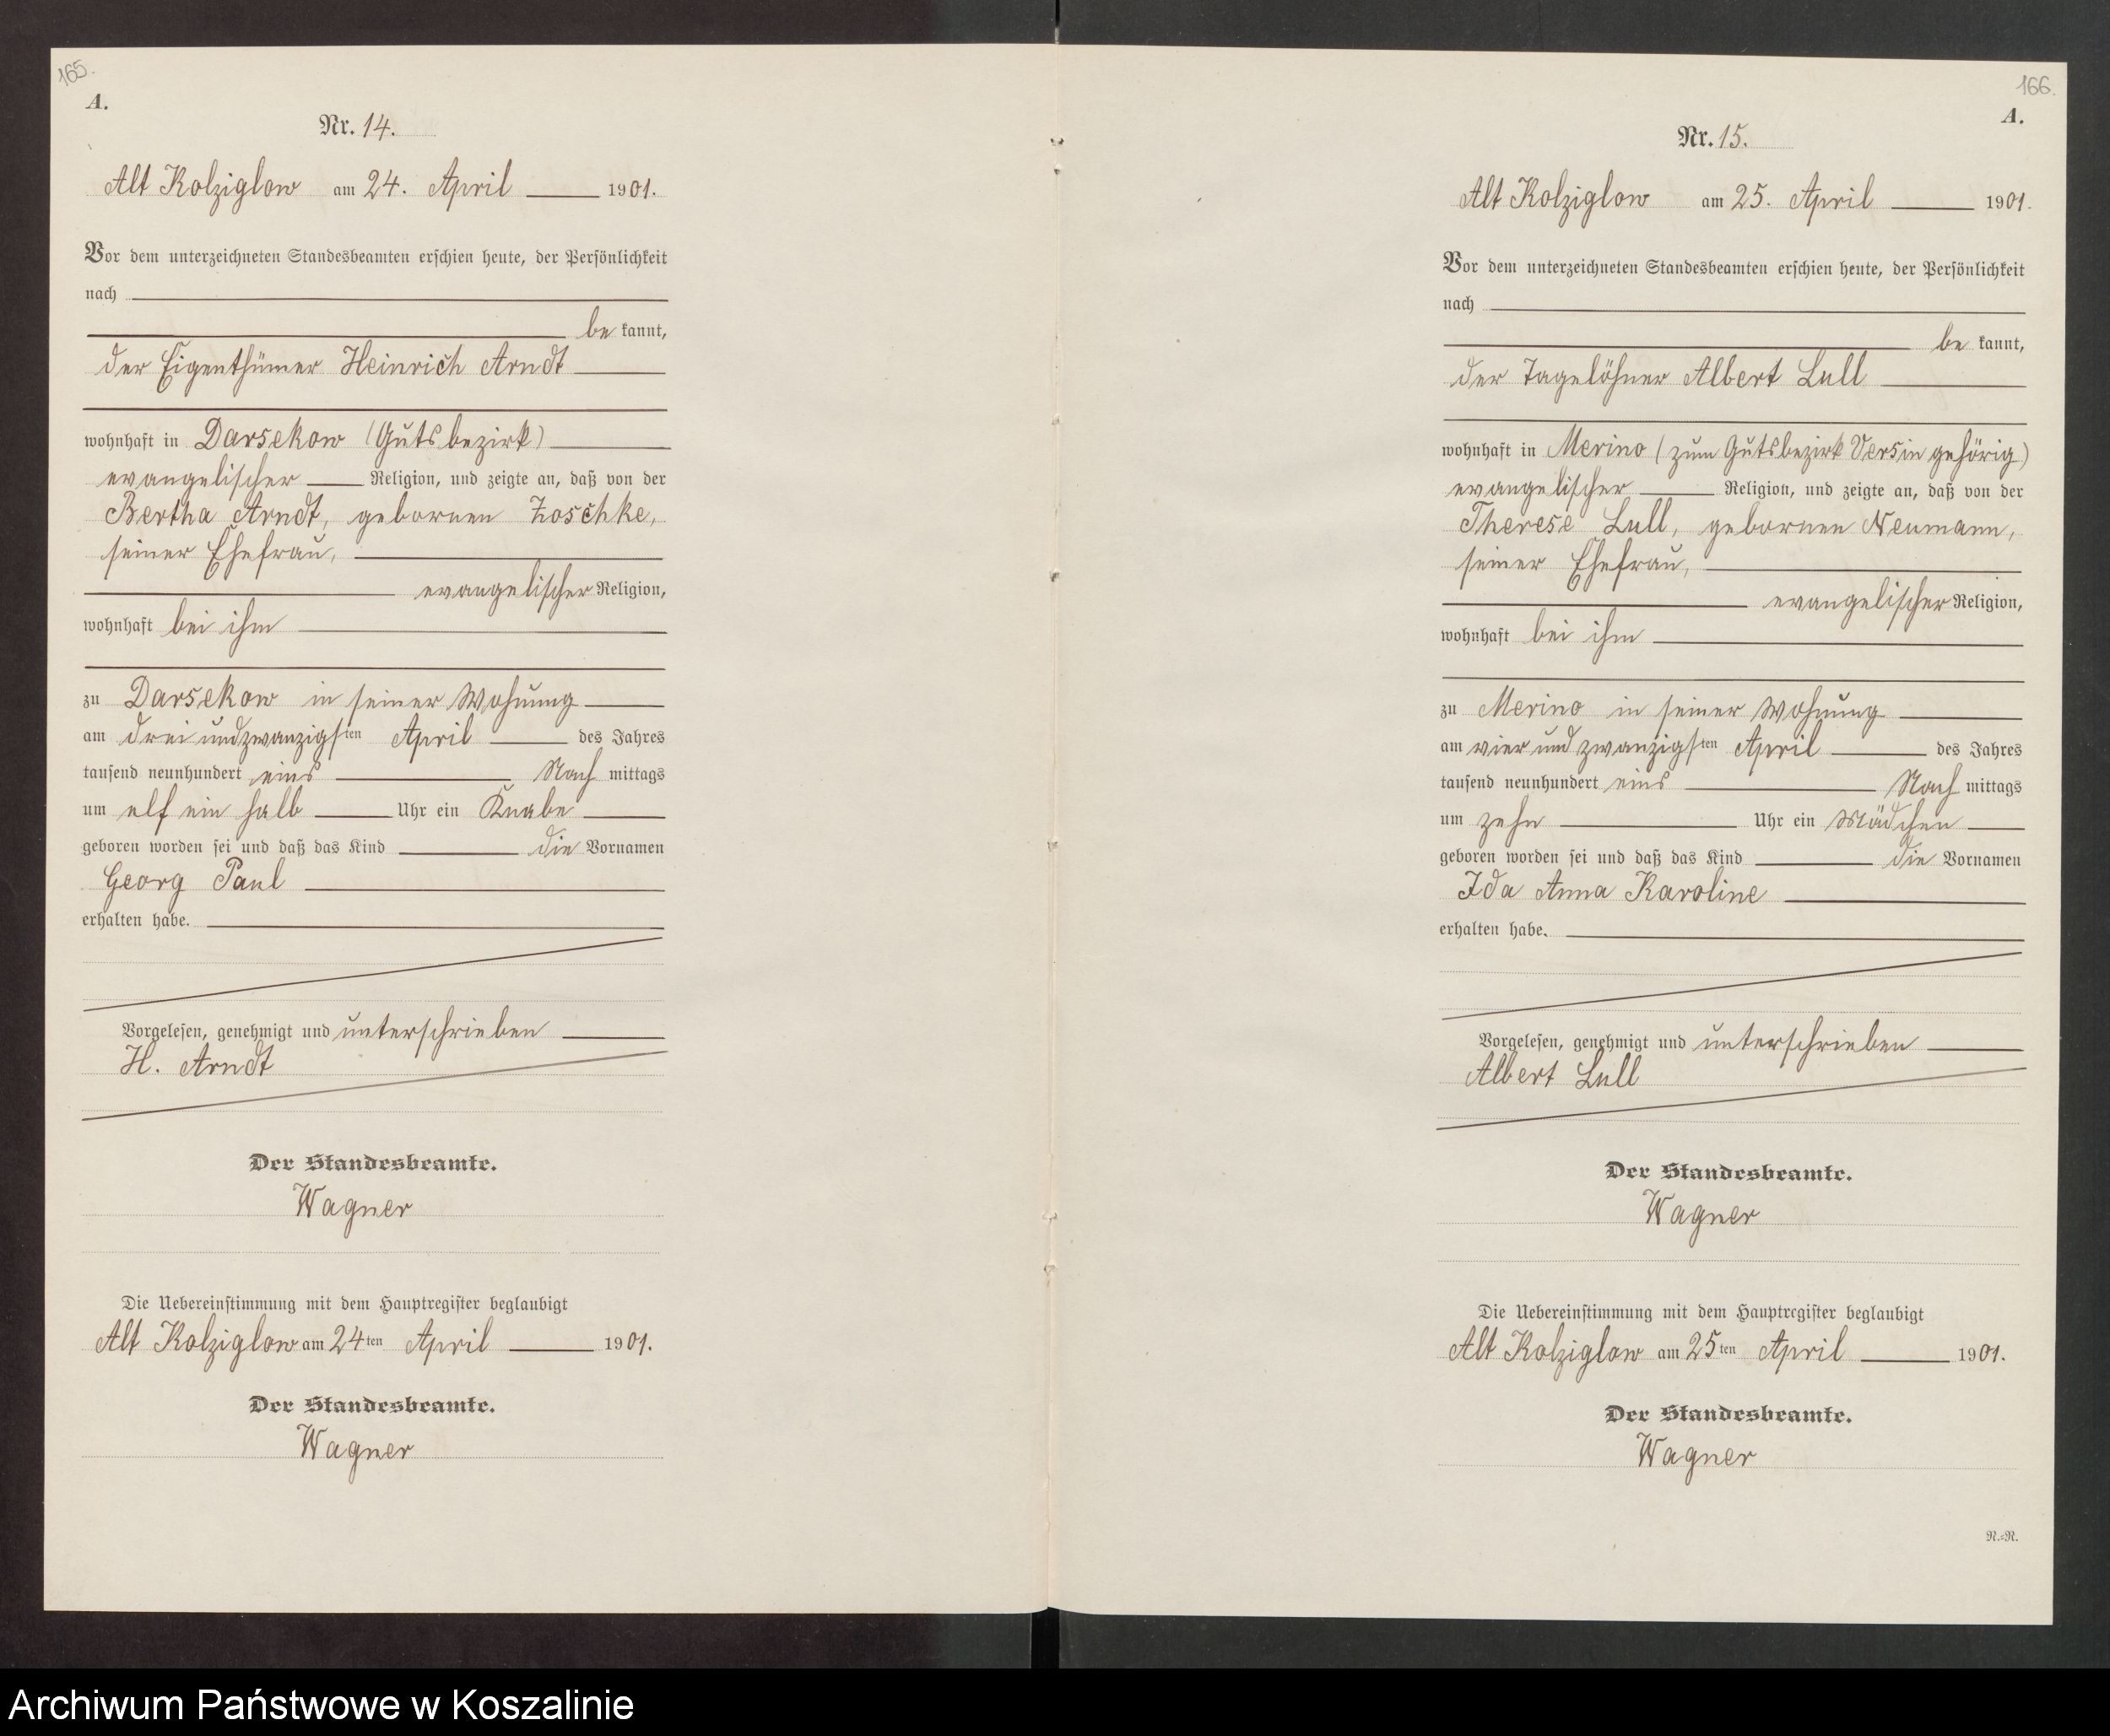 165.
A.
Nr. 14.
Alt Kolziglow am 24. April 1901.
Vor dem unterzeichneten Standesbeamten erschien heute, der Persönlichkeit
nach
be kannt,
der Eigenthümer Heinrich Arndt
wohnhaft in Darsekow (Gutsbezirk)
evangelischer Religion, und zeigte an, daß von der
Bertha Arndt, gebornen Zoschke,
seiner Ehefrau,
evangelischer Religion,
wohnhaft bei ihm
zu Darsekow in seiner Wohnung
am drei und zwanzigsten April des Jahres
tausend neunhundert eins Nach mittags
um elf ein halb Uhr ein Knabe
geboren worden sei und daß das Kind die Vornamen
Georg Paul
erhalten habe.
Vorgelesen, genehmigt und unterschrieben
H. Arndt
Der Standesbeamte.
Wagner
Die Uebereinstimmung mit dem Hauptregister beglaubigt
Alt Kolziglow am 24ten April 1901.
Der Standesbeamte.
Wagner
166.
A.
Nr. 15.
Alt Kolziglow am 25. April 1901.
Vor dem unterzeichneten Standesbeamten erschien heute, der Persönlichkeit
nach
be kannt,
der Tagelöhner Albert Lull
wohnhaft in Merino (zum Gutsbezirk Versin gehörig)
evangelischer Religion, und zeigte an, daß von der
Therese Lull, gebornen Neumann,
seiner Ehefrau,
evangelischer Religion,
wohnhaft bei ihm
zu Merino in seiner Wohnung
am vier und zwanzigsten April des Jahres
tausend neunhundert eins Nach mittags
um zehn Uhr ein Mädchen
geboren worden sei und daß das Kind die Vornamen
Ida Anna Karoline
erhalten habe.
Vorgelesen, genehmigt und unterschrieben
Albert Lull
Der Standesbeamte.
Wagner
Die Uebereinstimmung mit dem Hauptregister beglaubigt
Alt Kolziglow am 25ten April 1901.
Der Standesbeamte.
Wagner
N.=N.
Archiwum Państwowe w Koszalinie